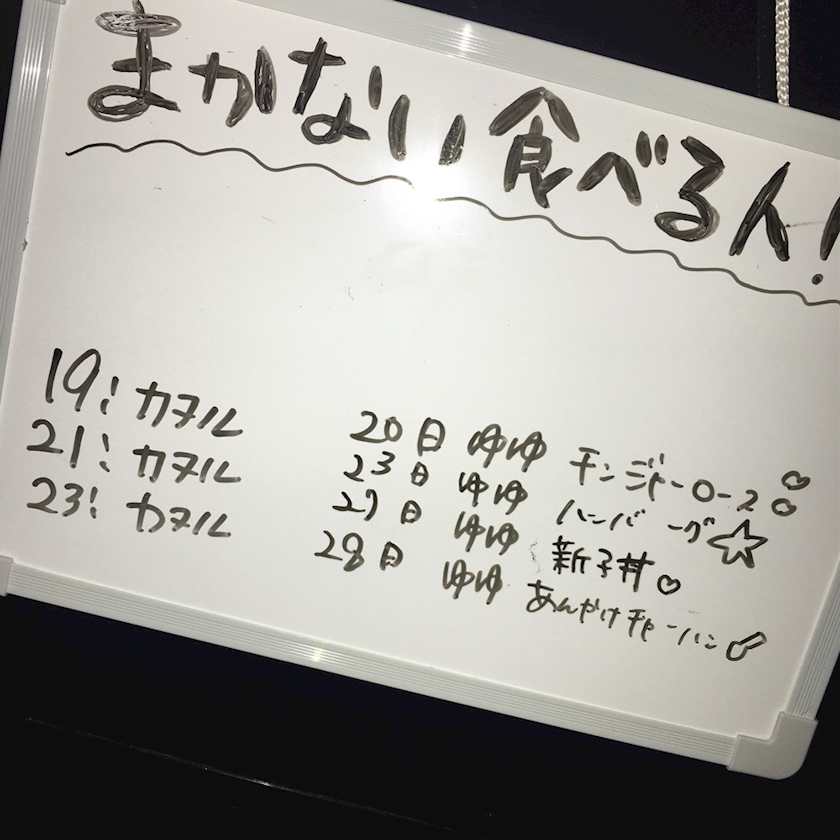 まかない食べる人!
19: カヲル
21: カヲル
23: カヲル
20日 ゆゆ チンジャーロース♡
23日 ゆゆ ハンバーグ☆
27日 ゆゆ 新子丼♡
28日 ゆゆ あんかけチャーハン